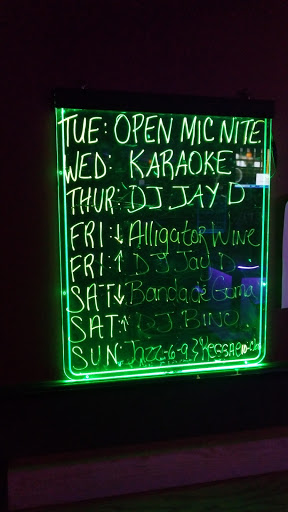 TUE: OPEN MIC NITE
WED: KARAOKE
THUR: DJ JAY D
FRI:↓ Alligator Wine
FRI:↑ DJ Jay D
SAT↓ Banda de
SAT:↑ DJ BINO
SUN: Jazz-6-9 & Reggae